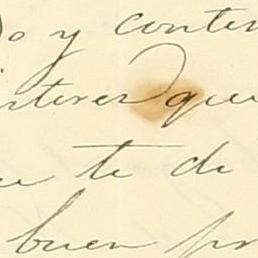 y conten
interes que
te di
buen pr